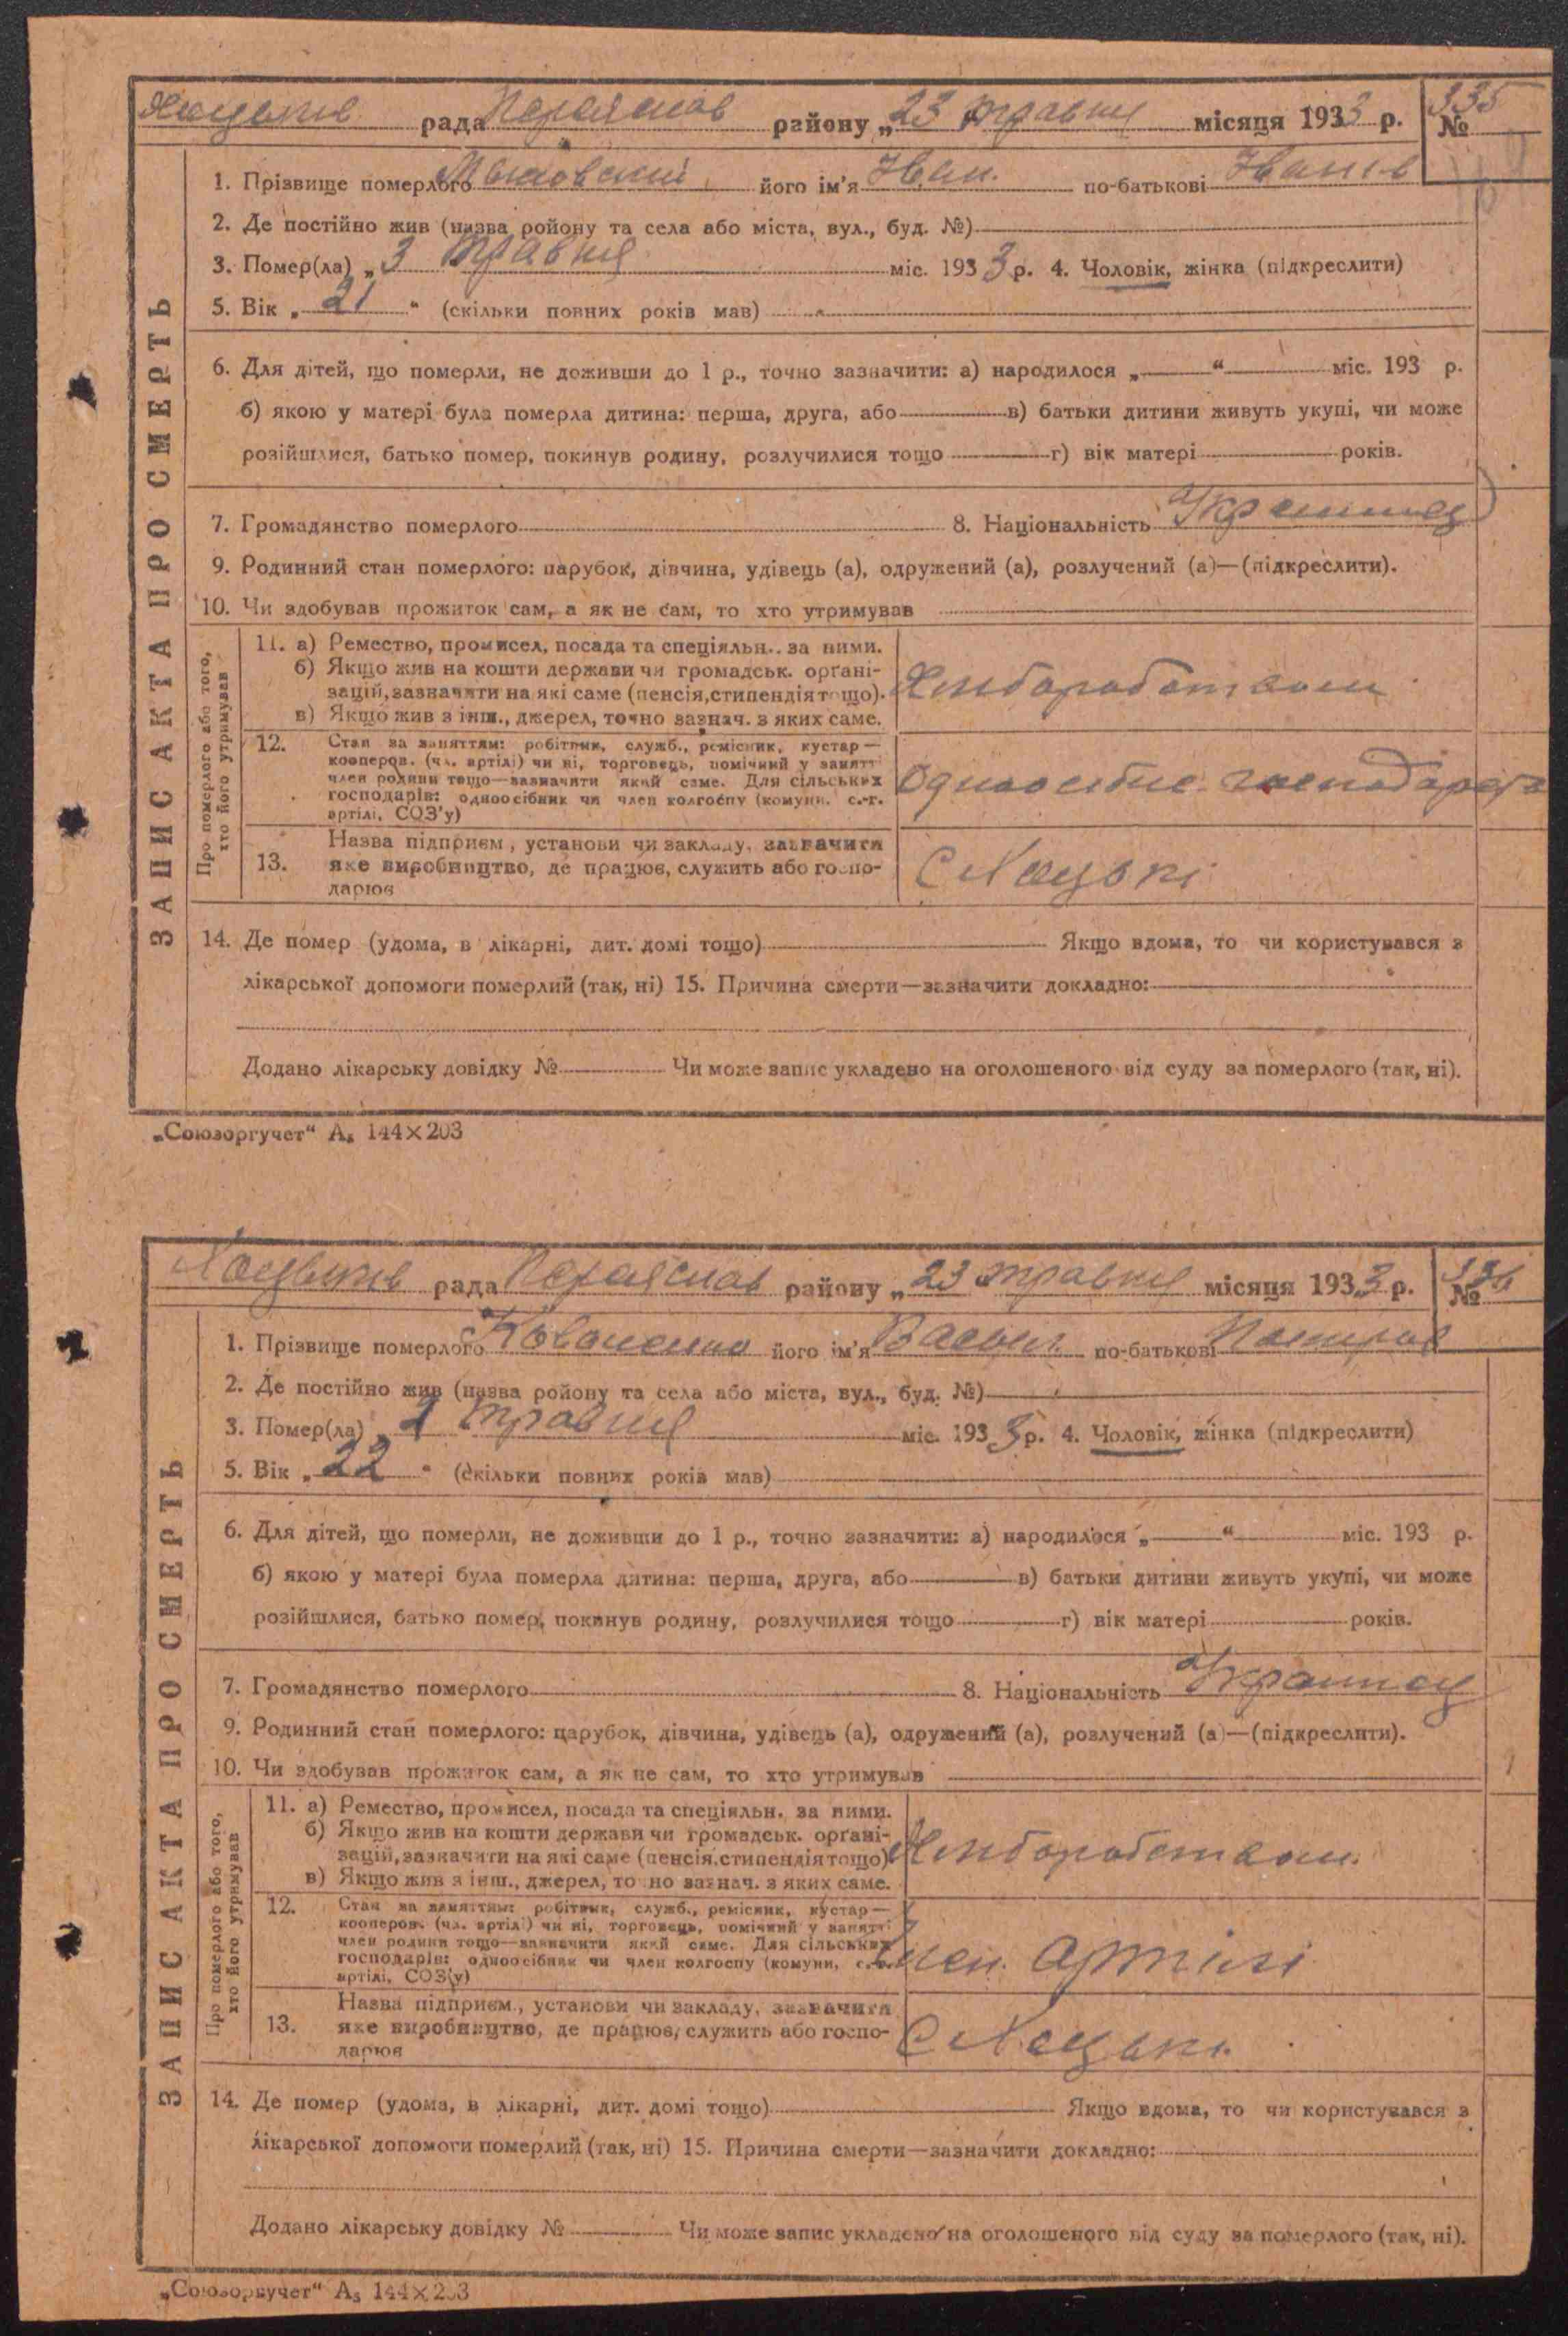 Хоцьків рада Переяслав району „23 травня місяця 1933 р. № 335
1. Прізвище померлого його ім'я Іван по-батькові Іванів
2. Де постійно жив (назва ройону та села або міста, вул., буд. №)
3. Помер(ла) „3 травня міс. 1933 р. 4. Чоловік, жінка (підкреслити)
5. Вік „21" (скільки повних років мав)
6. Для дітей, що померли, не доживши до 1 р., точно зазначити: а) народилося „ " міс. 193 р.
б) якою у матері була померла дитина: перша, друга, або в) батьки дитини живуть укупі, чи може
розійшлися, батько помер, покинув родину, розлучилися тощо г) вік матері років.
7. Громадянство померлого 8. Національність Українец
9. Родинний стан померлого: парубок, дівчина, удівець (а), одружений (а), розлучений (а)—(підкреслити).
10. Чи здобував прожиток сам, а як не сам, то хто утримував
ЗАПИС АКТА ПРО СМЕРТЬ
Про померлого або того,
хто його утримував
11. а) Ремество, промисел, посада та спеціяльн.. за ними.
б) Якщо жив на кошти держави чи громадськ. орґані-
зацій, зазначити на які саме (пенсія, стипендія тощо).
в) Якщо жив з інш., джерел, точно зазнач. з яких саме.
Хлиборобством
12. Стан за заняттям: робітник, служб., ремісник, кустар—
кооперов. (чл. артілі) чи ні, торговець, помічний у занятті
член родини тощо—зазначити який саме. Для сільських
господарів: одноосібник чи член колгоспу (комуни, с.-г.
артілі, СОЗ'у)
Одноосібне господарство
13. Назва підприєм., установи чи закладу, зазначити
яке виробництво, де працює, служить або госпо-
дарює
С Хоцькі
14. Де помер (удома, в лікарні, дит. домі тощо) Якщо вдома, то чи користувався з
лікарської допомоги померлий (так, ні) 15. Причина смерти—зазначити докладно:
Додано лікарську довідку № Чи може запис укладено на оголошеного від суду за померлого (так, ні).
„Союзоргучет" А₅ 144×203
Хоцьків рада Переяслав району „23 травня місяця 1933 р. № 336
1. Прізвище померлого Коваленко його ім'я Васыл по-батькові
2. Де постійно жив (назва ройону та села або міста, вул., буд. №)
3. Помер(ла) травня міс. 1933 р. 4. Чоловік, жінка (підкреслити)
5. Вік „22" (скільки повних років мав)
6. Для дітей, що померли, не доживши до 1 р., точно зазначити: а) народилося „ " міс. 193 р.
б) якою у матері була померла дитина: перша, друга, або в) батьки дитини живуть укупі, чи може
розійшлися, батько помер, покинув родину, розлучилися тощо г) вік матері років.
7. Громадянство померлого 8. Національність Українец
9. Родинний стан померлого: парубок, дівчина, удівець (а), одружений (а), розлучений (а)—(підкреслити).
10. Чи здобував прожиток сам, а як не сам, то хто утримував
ЗАПИС АКТА ПРО СМЕРТЬ
Про померлого або того,
хто його утримував
11. а) Ремество, промисел, посада та спеціяльн. за ними.
б) Якщо жив на кошти держави чи громадськ. орґані-
зацій, зазначити на які саме (пенсія, стипендія тощо)
в) Якщо жив з інш., джерел, точно зазнач. з яких саме.
Хлиборобством
12. Стан за заняттям: робітник, служб., ремісник, кустар—
кооперов. (чл. артілі) чи ні, торговець, помічний у занятті
член родини тощо—зазначити який саме. Для сільських
господарів: одноосібник чи член колгоспу (комуни, с.-г.
артілі, СОЗ'у)
Член Артілі
13. Назва підприєм., установи чи закладу, зазначити
яке виробництво, де працює, служить або госпо-
дарює
С Хоцькі
14. Де помер (удома, в лікарні, дит. домі тощо) Якщо вдома, то чи користувався з
лікарської допомоги померлий (так, ні) 15. Причина смерти—зазначити докладно:
Додано лікарську довідку № Чи може запис укладено на оголошеного від суду за померлого (так, ні).
„Союзоргучет" А₅ 144×203